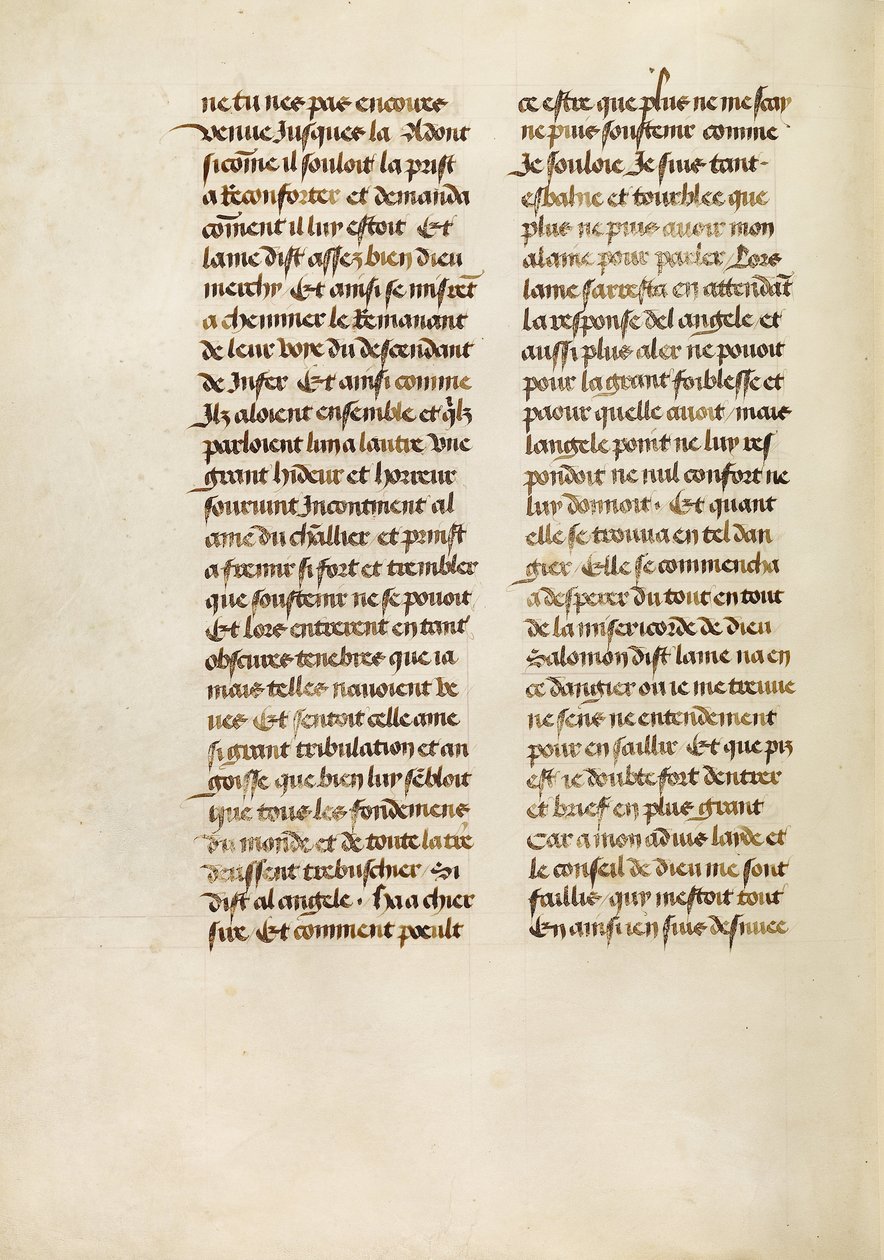 ne tu nes pas encores
venue Jusques la Adont
si com̄e il souloit la prist
a Reconforter et demanda
com̄ent il luy estoit Et
lame dist assez bien dieu
merchy / Et ainsi se misrēt
a cheminer le Remanant
de leur voye du descendant
de Infer Et ainsi comme
Ilz aloient ensemble et qͥlz
parloient lun a lautre vne
grant hideur et horreur
souruint Incontinent al
ame du chl̄lier et prinst
a fremir si fort et trembler
que soustenir ne se pouoit
Et lors entrerent en tant
obscures tenebres que ia
mais telles nauoient ve
ues Et sentoit celle ame
si grant tribulation et an
goisse que bien luy sēbloit
que tous les fondemens
du monde et de toute la tr̄e
deussent trebuschier / Si
dist al angele . Haa chier
sire / Et comment poeult
ce estre que plus ne me scay
ne puis soustenir comme
Je souloie Je suis tant
esbahie et tourblee que
plus ne puis auoir mon
alaine pour parler / Lors
lame sarresta en attendāt
la response del angele / et
aussi plus aler ne pouoit
pour la grant foiblesse et
paour quelle auoit / mais
langele point ne luy res
pondoit ne nul confort ne
luy donnoit . Et quant
elle se trouua en tel dan
gier / Elle se commencha
a desperer du tout en tout
de la misericorde de dieu
Salomon dist lame na en
ce dangier ou ie me treuue
ne sens ne entendement
pour en saillir Et que piz
est ie doubte fort dentrer
et brief en plus grant
Car a mon aduis laide et
le conseil de dieu me sont
faillis / quy mestoit tout
En ainsi ien suis desnuee